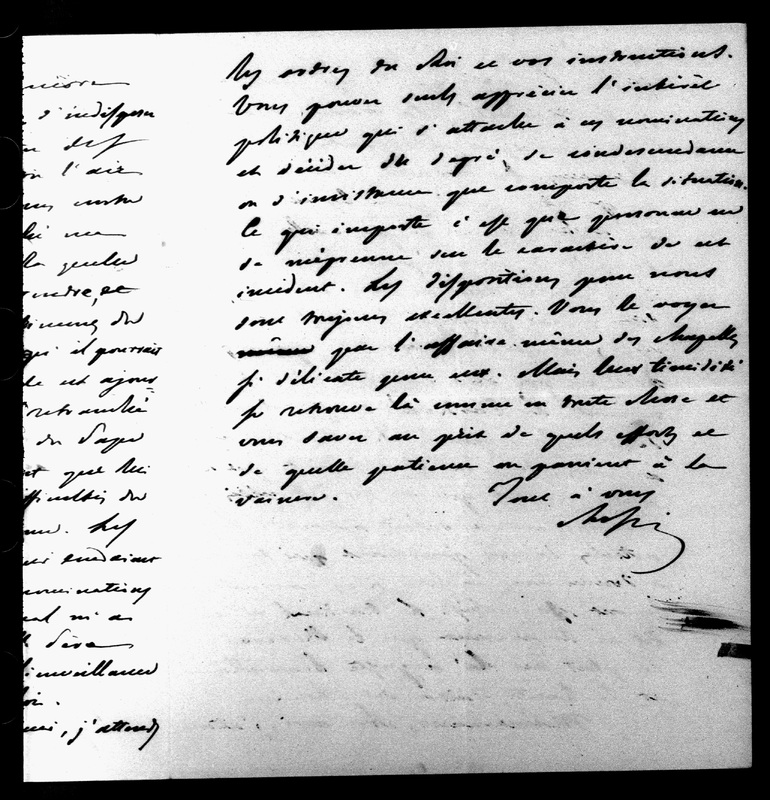 encore
d'indisposer
des
l'air
notre
me
la quelle
rendre, et
du
il pourrait
et ajour
retranché
du Pape
que lui
difficultés du
Les
nominations
ni a
Père
bienveillance
j'attends
les ordres du Roi et vos instructions.
Vous pouvez seuls apprécier l'intérêt
politique qui s'attache à ces nominations
et décider du degré de condescendance
ou d'insistance que comporte la situation.
Ce qui importe c'est que personne ne
se méprenne sur le caractère de cet
incident. Les dispositions pour nous
sont toujours excellentes. Vous le voyez
par l'affaire même des chapelles
si délicate pour eux. Mais leur timidité
se retrouve là comme en toute chose et
vous savez au prix de quels efforts et
de quelle patience on parvient à la
vaincre.
Tout à vous